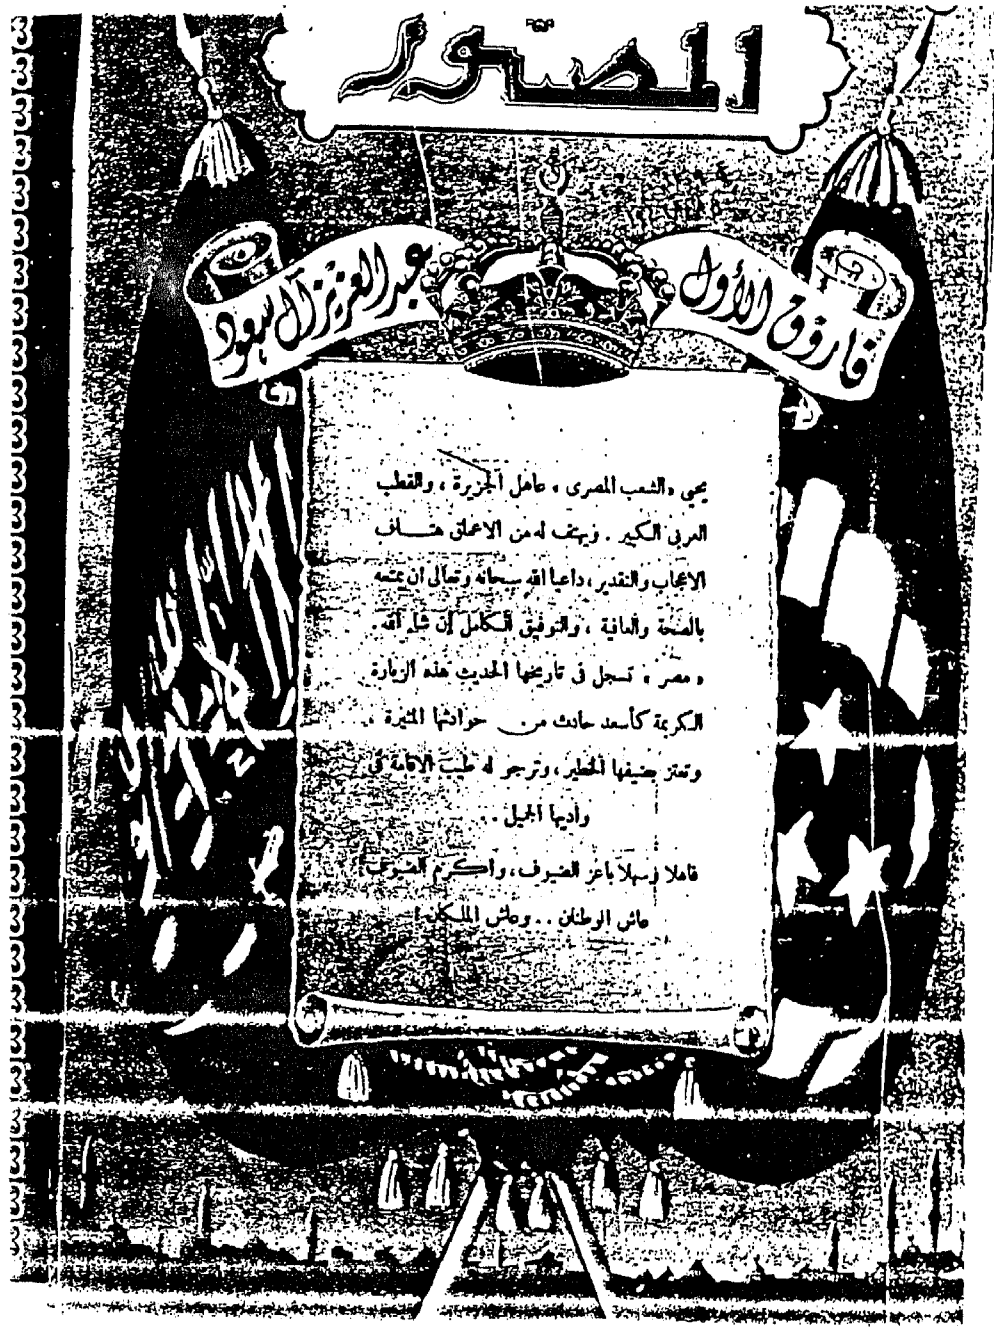 المصور
فاروق الأول
عبد العزيز آل سعود
يحيي «الشعب المصرى» عاهل الجزيرة ، والقطب
العربى الكبير . ويهتف له من الاعماق هتاف
الاعجاب والتقدير ، داعيا الله سبحانه وتعالى ان يمتعه
بالصحة والعافية ، والتوفيق الكامل إن شاء الله .
« مصر » تسجل فى تاريخها الحديث هذه الزيارة
الكريمة كأسعد حادث من حوادثها المثيرة .
وتعتز بضيفها الخطير ، وترجو له طيب الاقامة فى
واديها الجميل ..
فاهلا وسهلا باعز الضيوف ، واكرم الضيوف
عاش الوطنان .. وعاش الملكان !